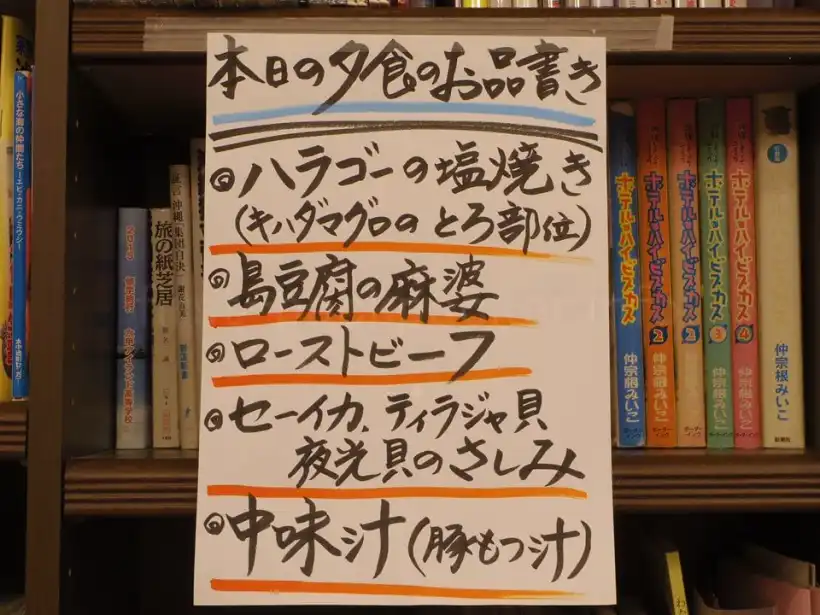 本日の夕食のお品書き
◎ハラゴーの塩焼き
(キハダマグロのとろ部位)
◎島豆腐の麻婆
◎ローストビーフ
◎セーイカ.ティラジャ貝
夜光貝のさしみ
◎中味汁(豚もつ汁)
小さな海の仲間たち
旅の紙芝居
ホテル・ハイビスカス
仲宗根みいこ
ホテル・ハイビスカス
2
仲宗根みいこ
ホテル・ハイビスカス
2
仲宗根みいこ
ホテル・ハイビスカス
3
仲宗根みいこ
ホテル・ハイビスカス
4
仲宗根みいこ
仲宗根みいこ
新潮社